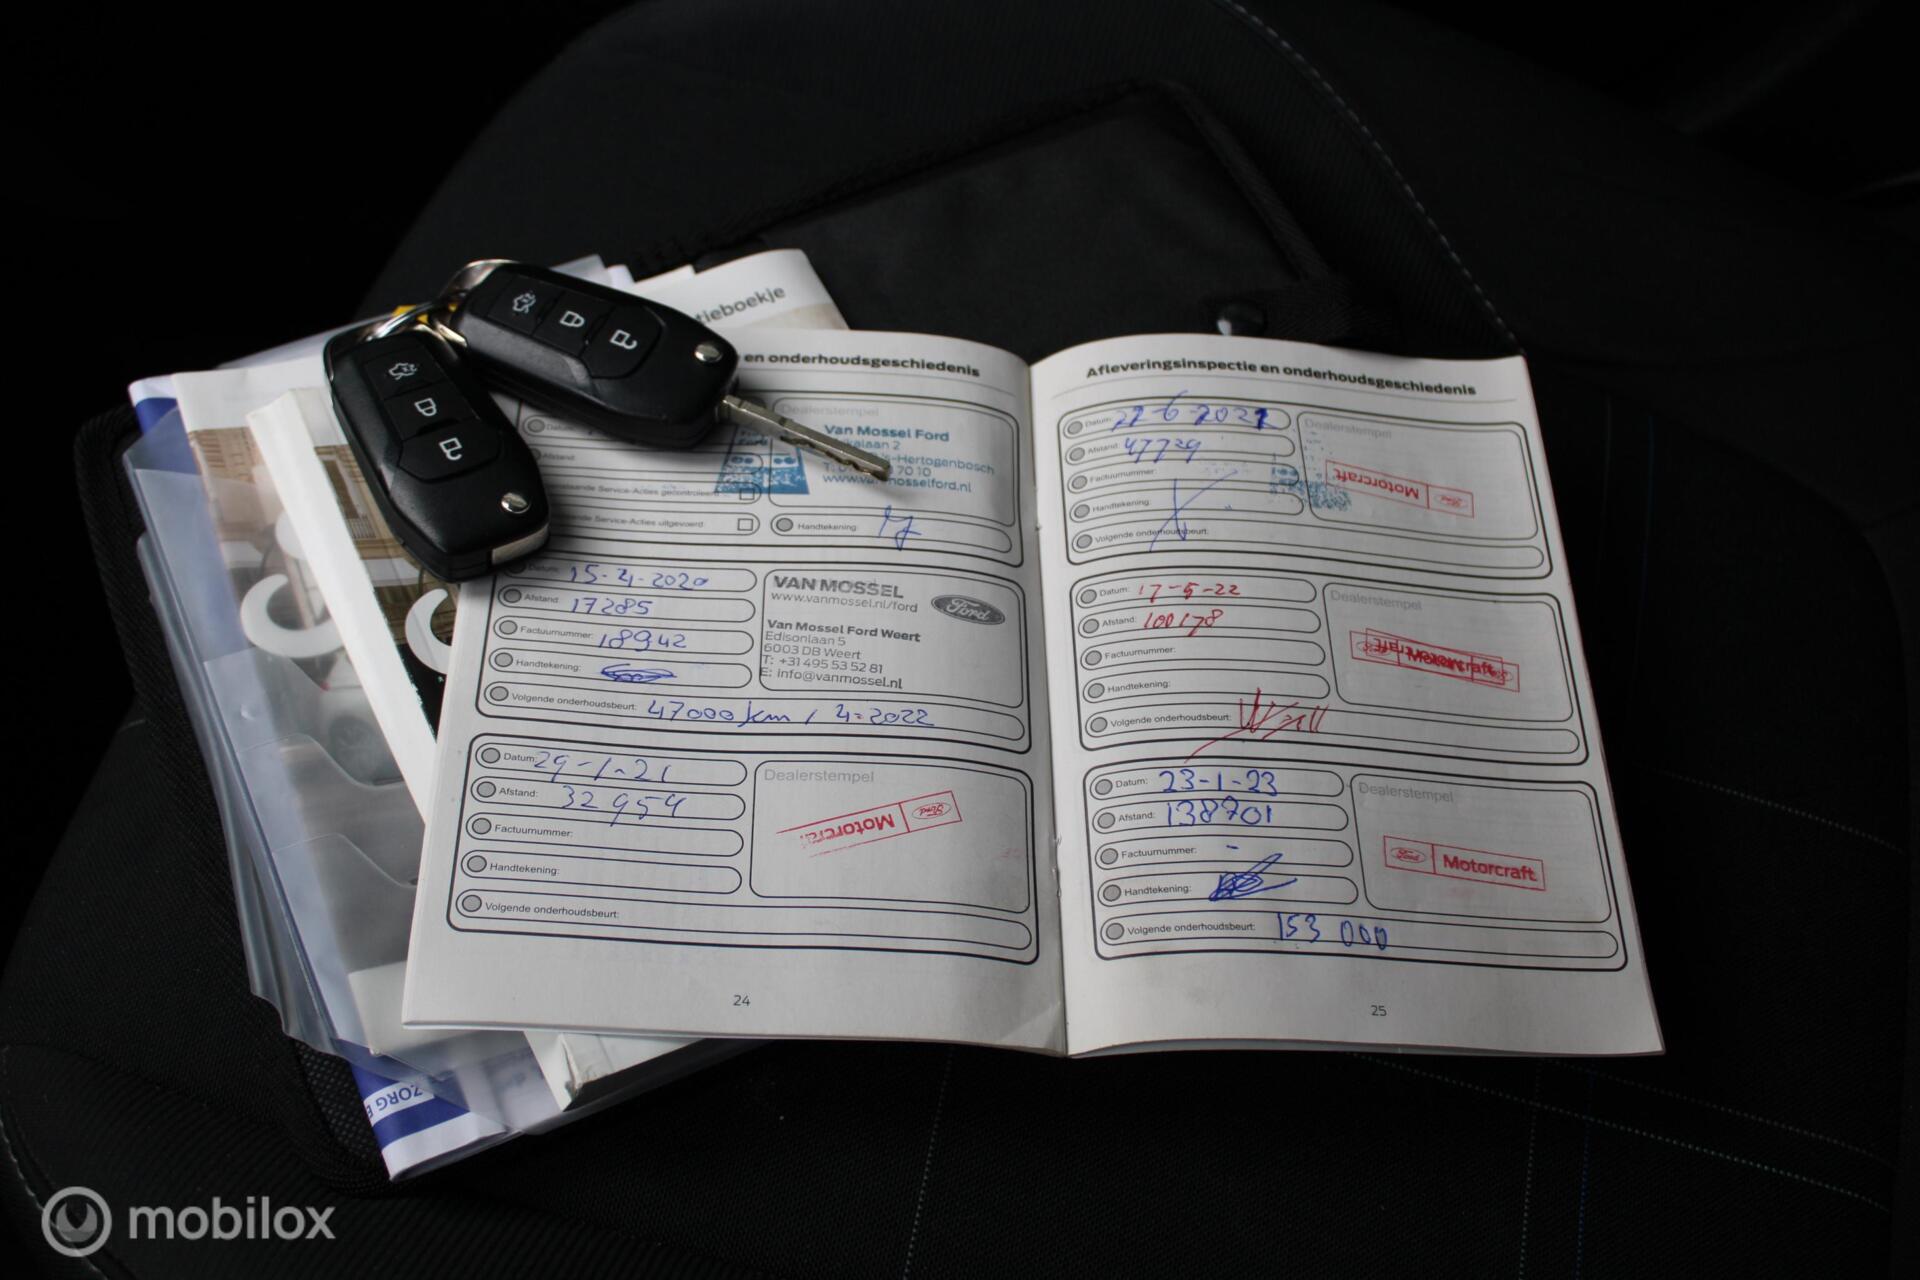 tieboekje
en onderhoudsgeschiedenis
Datum:
Afstand:
Service-Acties gecontroleerd:
Service-Acties uitgevoerd:
Dealerstempel
Van Mossel Ford
's-Hertogenbosch
Handtekening:
Datum: 15-4-2020
Afstand: 17285
Factuurnummer: 18942
Handtekening:
Volgende onderhoudsbeurt: 47000 km / 4-2022
VAN MOSSEL
www.vanmossel.nl/ford
Ford
Van Mossel Ford Weert
Edisonlaan 5
6003 DB Weert
T: +31 495 53 52 81
E: info@vanmossel.nl
Datum: 29-1-21
Afstand: 32954
Factuurnummer:
Handtekening:
Volgende onderhoudsbeurt:
Dealerstempel
Motorcraft Ford
24
Afleveringsinspectie en onderhoudsgeschiedenis
Datum:
Afstand: 47729
Factuurnummer:
Handtekening:
Volgende onderhoudsbeurt:
Dealerstempel
Motorcraft Ford
Datum: 17-5-22
Afstand: 100178
Factuurnummer:
Handtekening:
Volgende onderhoudsbeurt:
Dealerstempel
Motorcraft
Datum: 23-1-23
Afstand: 138701
Factuurnummer: -
Handtekening:
Volgende onderhoudsbeurt: 153 000
Dealerstempel
Ford Motorcraft
25
ZORG
mobilox